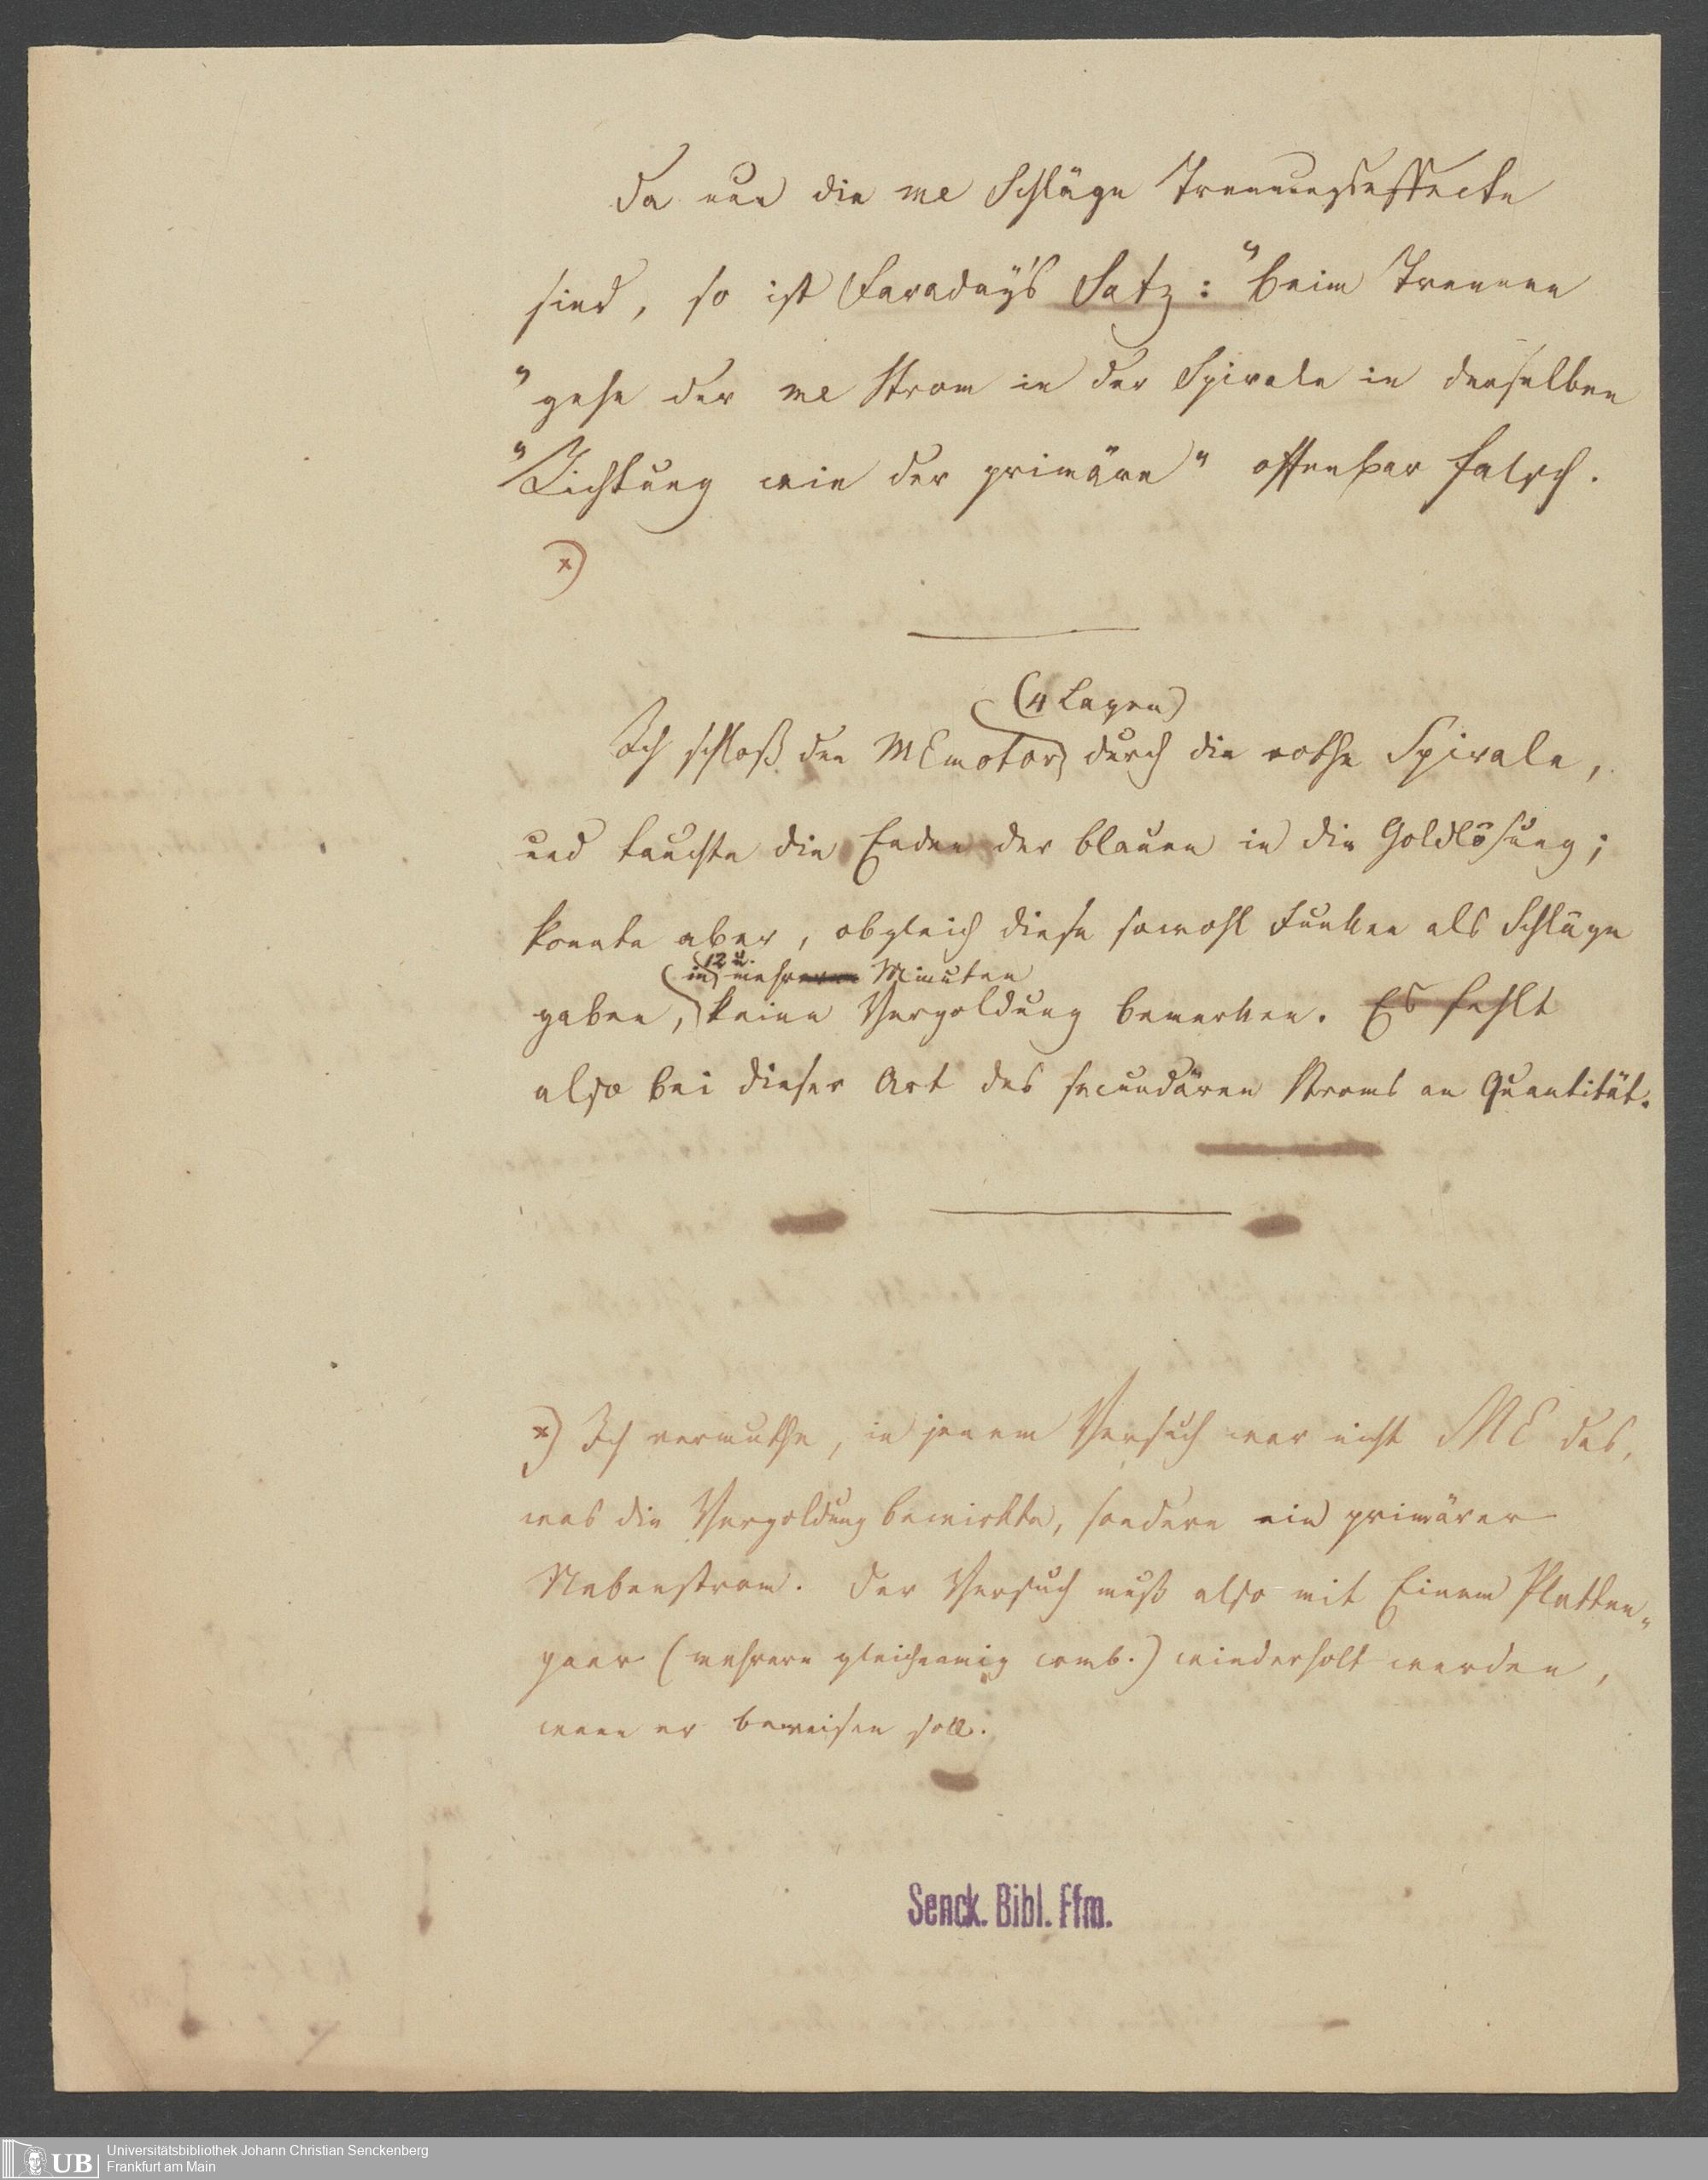 Da nun die me Schläge Trennungseffecte
sind, so ist Faraday's Satz: "beim Trennen
"gehe der me Strom in der Spirale in denselben
"Richtung wie der primäre" offenbar falsch.
×)
(4 Lagen)
Ich schloß den MEmotor durch die rothe Spirale,
und tauchte die Enden der blauen in die Goldlösung;
konnte aber, obgleich diese sowohl Funken als Schläge
in 12 u. mehreren Minuten
gaben, keine Vergoldung bemerken. Es fehlt
also bei dieser Art des secundären Stroms an Quantität.
×) Ich vermuthe, in jenem Versuch war nicht ME das,
was die Vergoldung bewirkte, sondern ein primärer
Nebenstrom. Der Versuch muß also mit Einem Platten-
paar (mehrere gleichnamig comb.) wiederholt werden,
wenn er beweisen soll.
Senck. Bibl. Ffm.
UB
Universitätsbibliothek Johann Christian Senckenberg
Frankfurt am Main